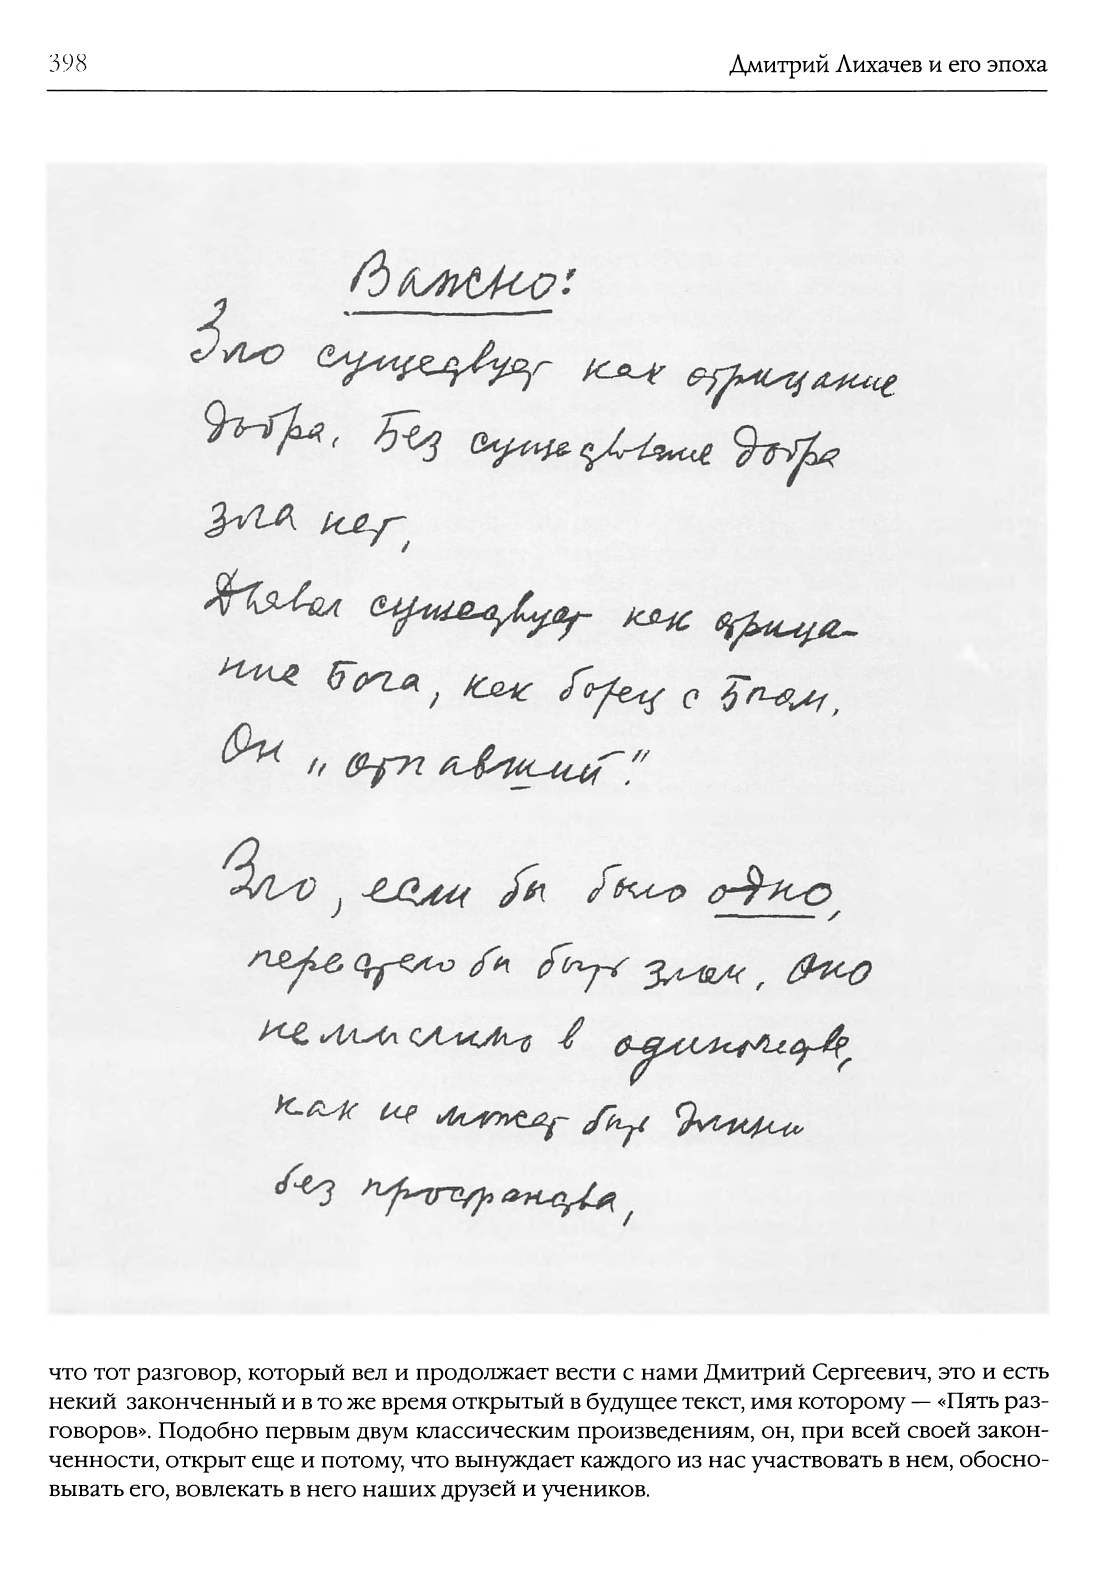 398
Дмитрий Лихачев и его эпоха
Важно:
Зло существует как отрицание
добра. Без существование добра
зла нет,
Дьявол существует как отрица-
ние Бога, как борец с Богом.
Он „отпавший".
Зло, если бы было одно,
перестало бы быть злом. Оно
немыслимо в одиночестве,
как не может быть длины
без пространства,
что тот разговор, который вел и продолжает вести с нами Дмитрий Сергеевич, это и есть
некий законченный и в то же время открытый в будущее текст, имя которому — «Пять раз-
говоров». Подобно первым двум классическим произведениям, он, при всей своей закон-
ченности, открыт еще и потому, что вынуждает каждого из нас участвовать в нем, обосно-
вывать его, вовлекать в него наших друзей и учеников.